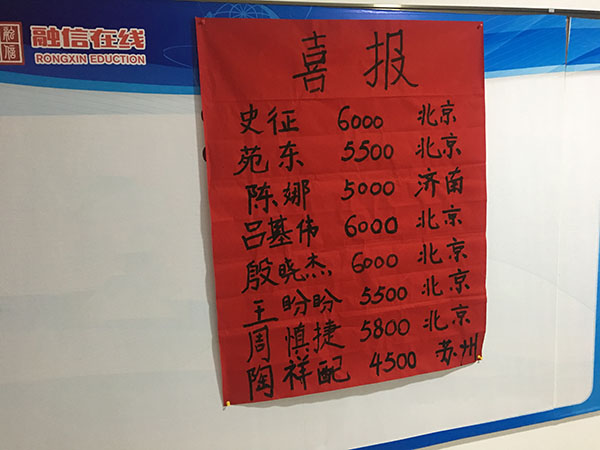 融信
融信在线
RONGXIN EDUCTION
喜报
史征 6000 北京
苑东 5500 北京
陈娜 5000 济南
吕基伟 6000 北京
殷晓杰 6000 北京
王盼盼 5500 北京
周慎捷 5800 北京
陶祥配 4500 苏州